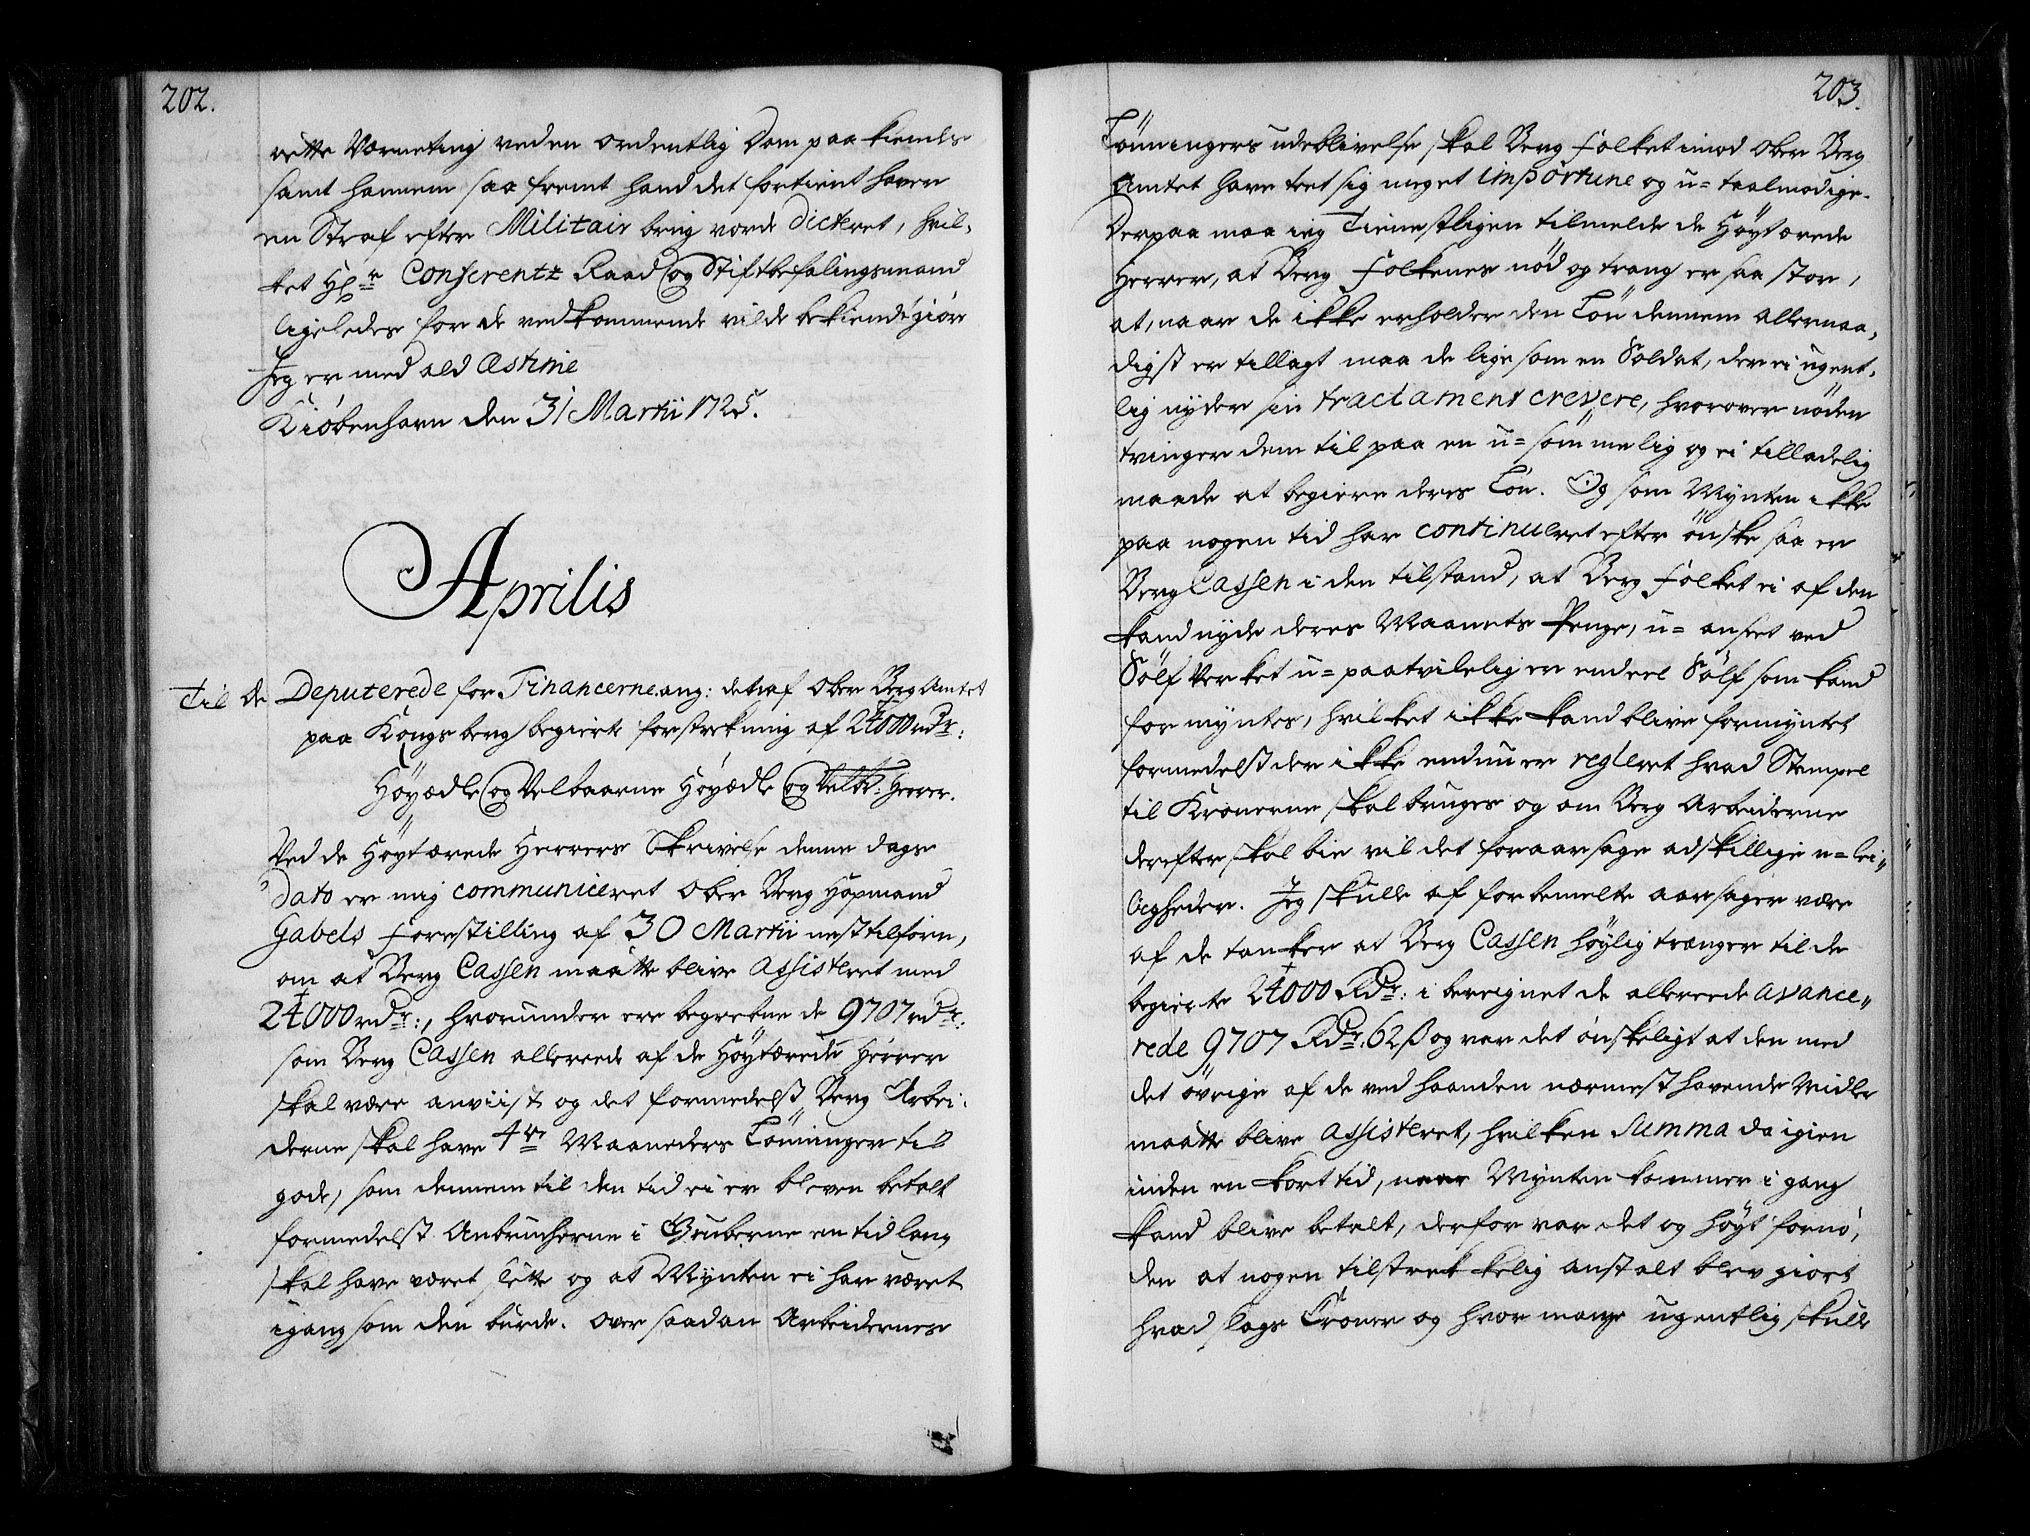 202.
rette Værneting ved en ordentlig Dom paakiendes
samt hannem saa fremt hand det fortient haver
en Straf efter Militair brug vorde dicteret, hvil-
ket Hr Conferentz Raad og Stiftbefalingsmand
ligeledes for de vedkommende vilde bekiendtgiøre
Jeg er med ald Æstime
Kiøbenhavn den 31 Martii 1725.
Aprilis
Til de Deputerede for Financerne ang: det af Ober Berg Amtet
paa Kongsberg begierte forstrekning af 24000 rdr:
Høyædle og Velbaarne Høyædle og Velb: Herrer.
Ved de Høytærede Herrers Skrivelse denne dags
dato er mig communiceret Ober Berg Hopmand
Gabels Forestilling af 30 Martii nesttilforn,
om at Berg Cassen maatte blive assisteret med
24000 rdr:, hvorunder ere begrebne de 9707 rdr:
som Berg Cassen allereede af de Høytærede Herrer
skal være anviist og det formedelst Berg Arbei-
derne skal have 4re Maaneders Lønninger til
gode, som dennem til den tid ei er bleven betalt
formedelst Anbrucherne i Gruberne en tid lang
skal have været slette og at Mynten ei har været
igang som den burde. Over saadan Arbeidernes
203.
Lønningers udeblivelse skal Berg Folket imod Ober Berg
Amtet have teet sig meget importune og u-taalmodige.
Derpaa maa ieg Tienestligen tilmelde de Høytærede
Herrer, at Berg Folkenes nød og trang er saa stor,
at, naar de ikke erholder den Løn dennem allernaa-
digst er tillagt maa de lige som en Soldat, der ei ugent-
lig nyder sin tractament crepere, hvorover nøden
tvinger dem til paa en u-sømmelig og ei tilladelig
maade at begiere deres Løn. Og som Mynten ikke
paa nogen tid har continueret efter ønske saa er
Berg Cassen i den tilstand, at Berg Folket ei af den
kand nyde deres Maanets Penge, u-anseet ved
Sølf Verket u-paatvilelig er endeel Sølf som kand
formyntes, hvilket ikke kand blive formyntet
formedelst der ikke endnu er regleret hvad Stempel
til Kronerne skal bruges og om Berg Arbeiderne
derefter skal bie vil det foraarsage adskillige u-lei-
ligheder. Jeg skulle af forbemelte aarsager være
af de tanker at Berg Cassen høylig trænger til de
begierte 24000 Rdr: i bereignet de allereede avance-
rede 9707 Rdr. 62 ß og var det ønskeligt at den med
det øvrige af de ved haanden nærmest havende Midler
maatte blive assisteret, hvilken Summa da igien
inden en kort tid, naar Mynten kommer i gang
kand blive betalt, derfor var det og høyt fornø-
den at nogen tilstrekkelig anstalt blev giort
hvad slags Croner og hvor mange ugentlig skulle